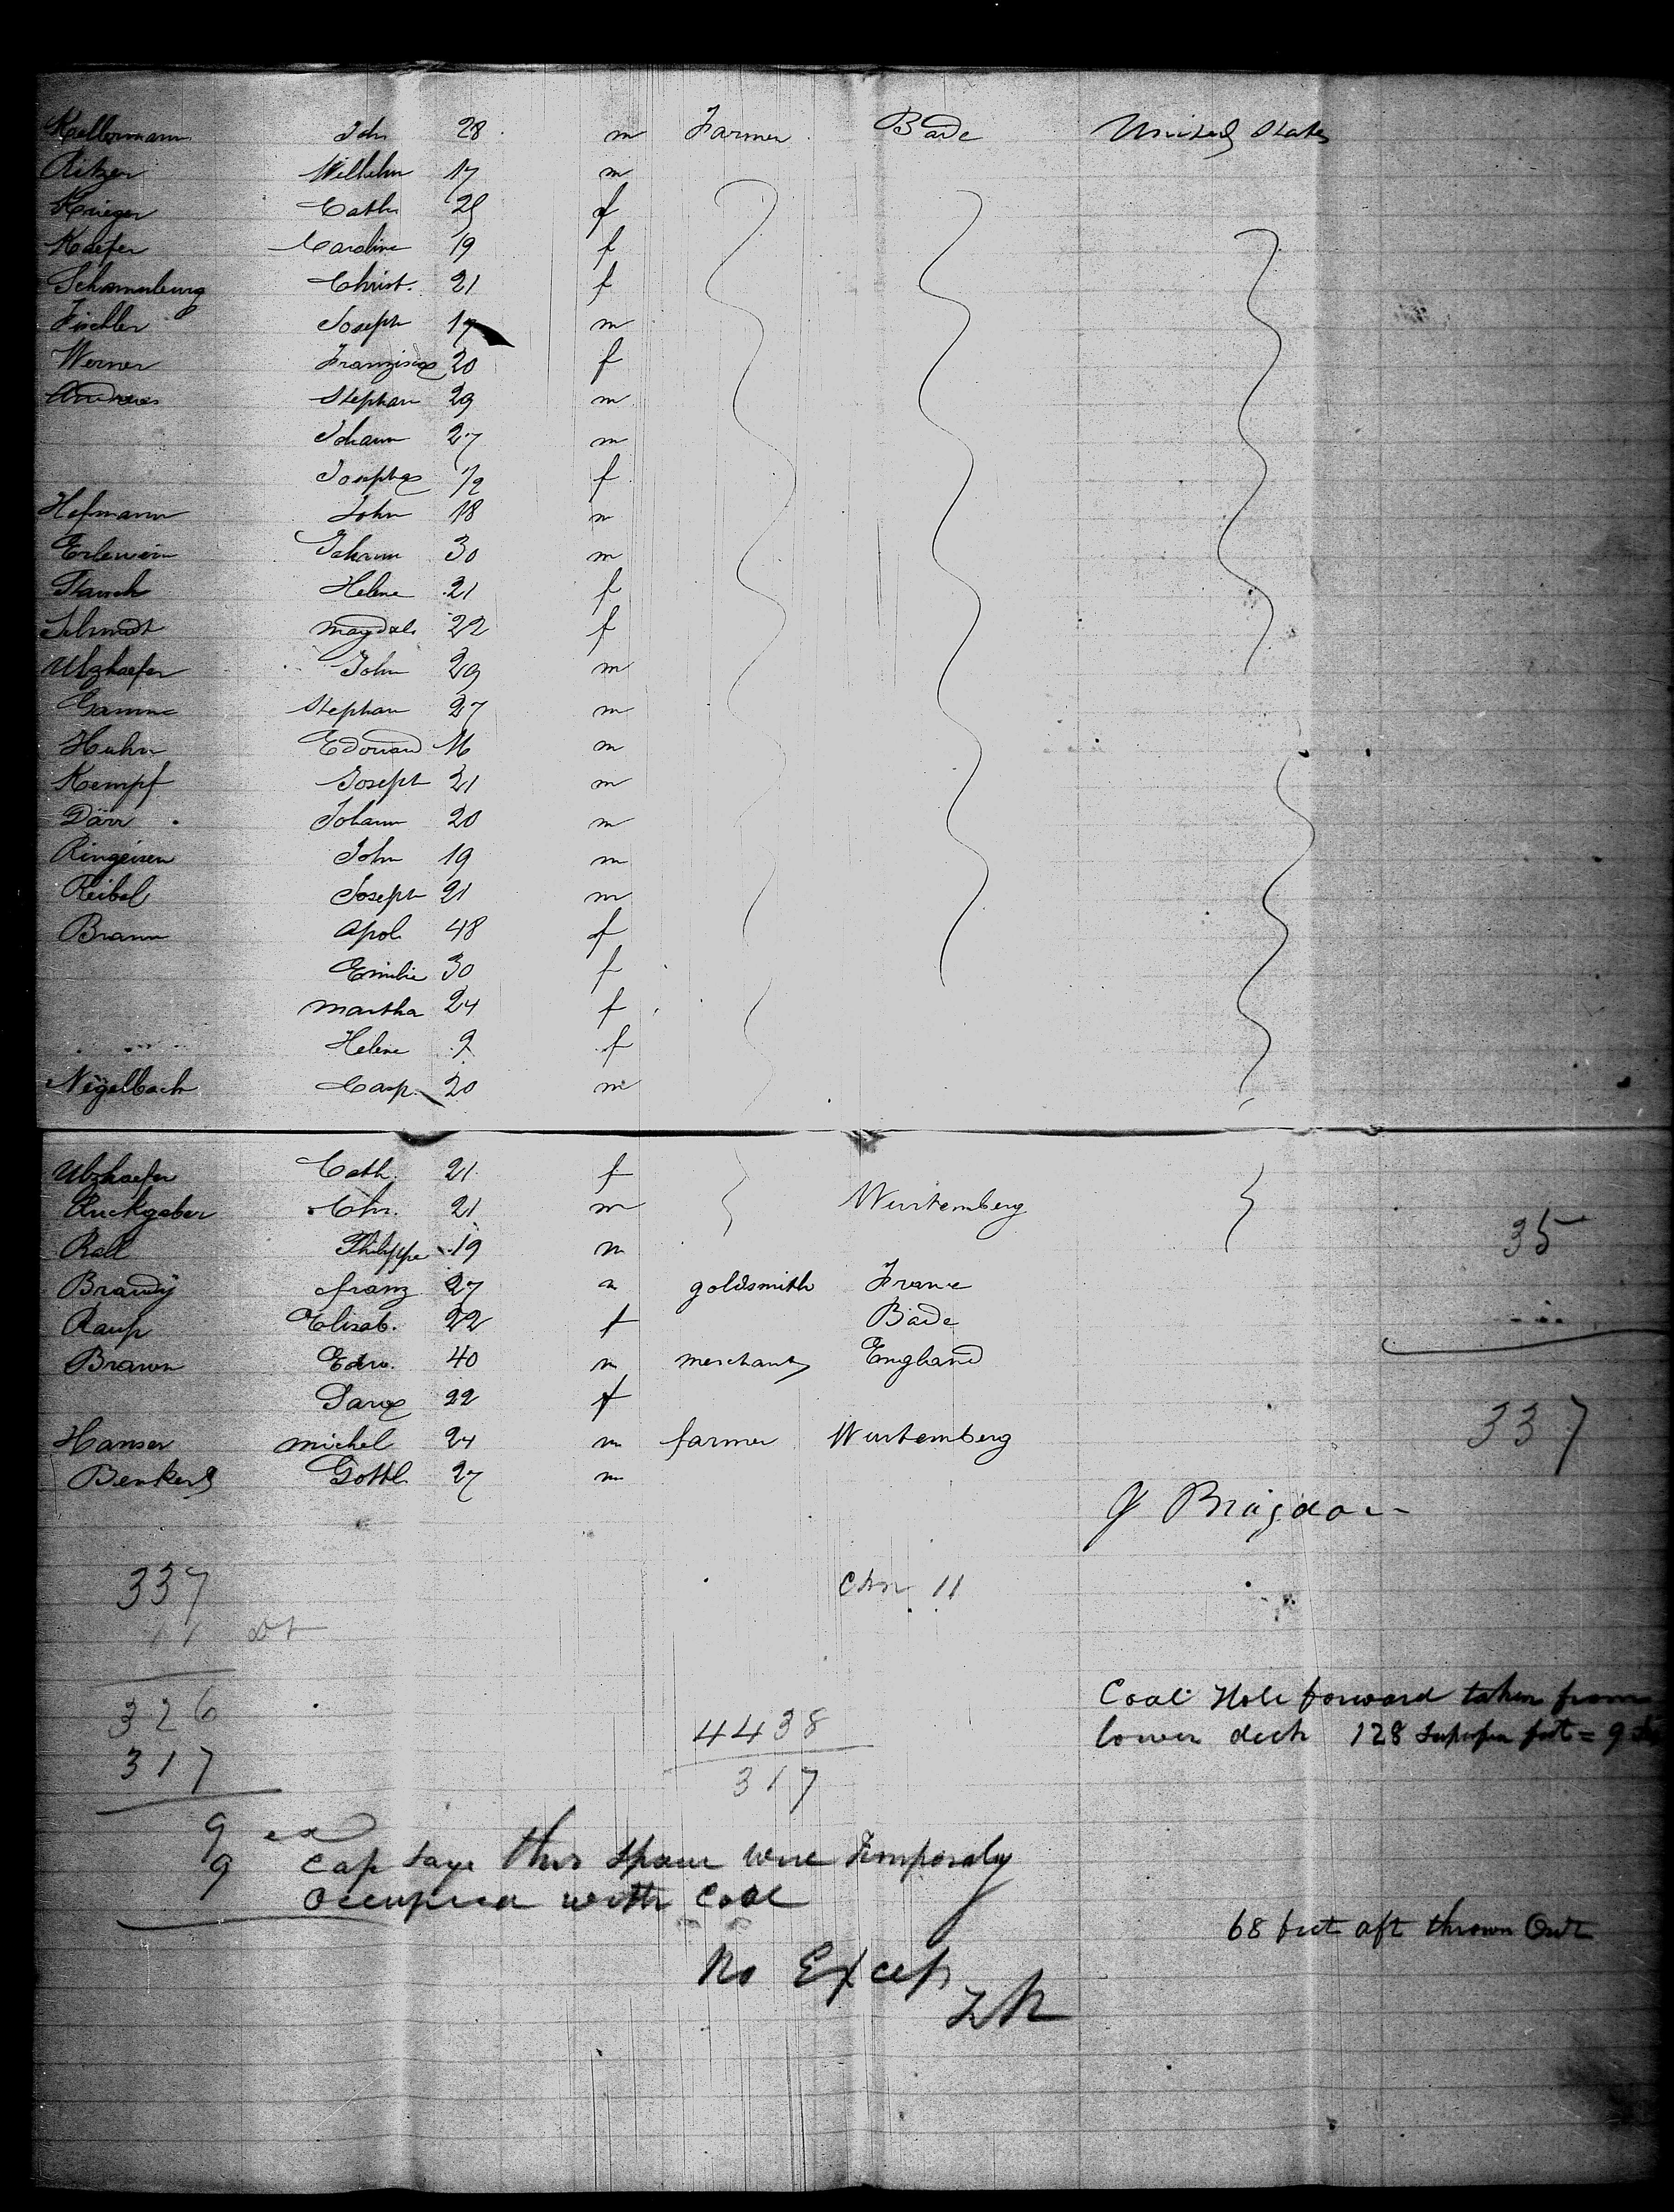 Kellermann Joh 28 m Farmer Bade United States
Ritzer Wilhelm 17 m
Krieger Cath 25 f
Kaefer Caroline 19 f
Schomburg Christ. 21 f
Fischler Joseph 17 m
Werner Franzisca 20 f
Andres Stephan 29 m
Johann 27 m
Josepha 1/2 f
Hefmann John 18 m
Erlewein Johann 30 m
Rausch Helene 21 f
Schmidt Magdal. 22 f
Ulzhoefer John 29 m
Gamme Stephan 27 m
Huhn Edouard 16 m
Kempf Joseph 21 m
Därr Johann 20 m
Ringeisen John 19 m
Reibel Joseph 21 m
Braun Apol. 48 f
Emilie 30 f
Martha 24 f
Helene 9 f
Negelbach Casp. 20 m
Ulzhoefer Cath. 21 f
Ruckgaber Chr. 21 m Wurtemberg
35
Rall Philippe 19 m
Brandy franz 27 m goldsmith France
Raup Elisab. 22 f Bade
Brawn Edw. 40 m merchant England
Sara 22 f
337
Hanser michel 24 m farmer Wurtemberg
Benkert Gottl. 27 m
J Bragdon
337
Chn 11
11
326
317
9 ex
9
4438
317
Coal Hole forward taken from
lower deck 128 feet = 9
Cap says this space were temporaly
occupied with Coal
68 feet aft thrown Out
No Excep